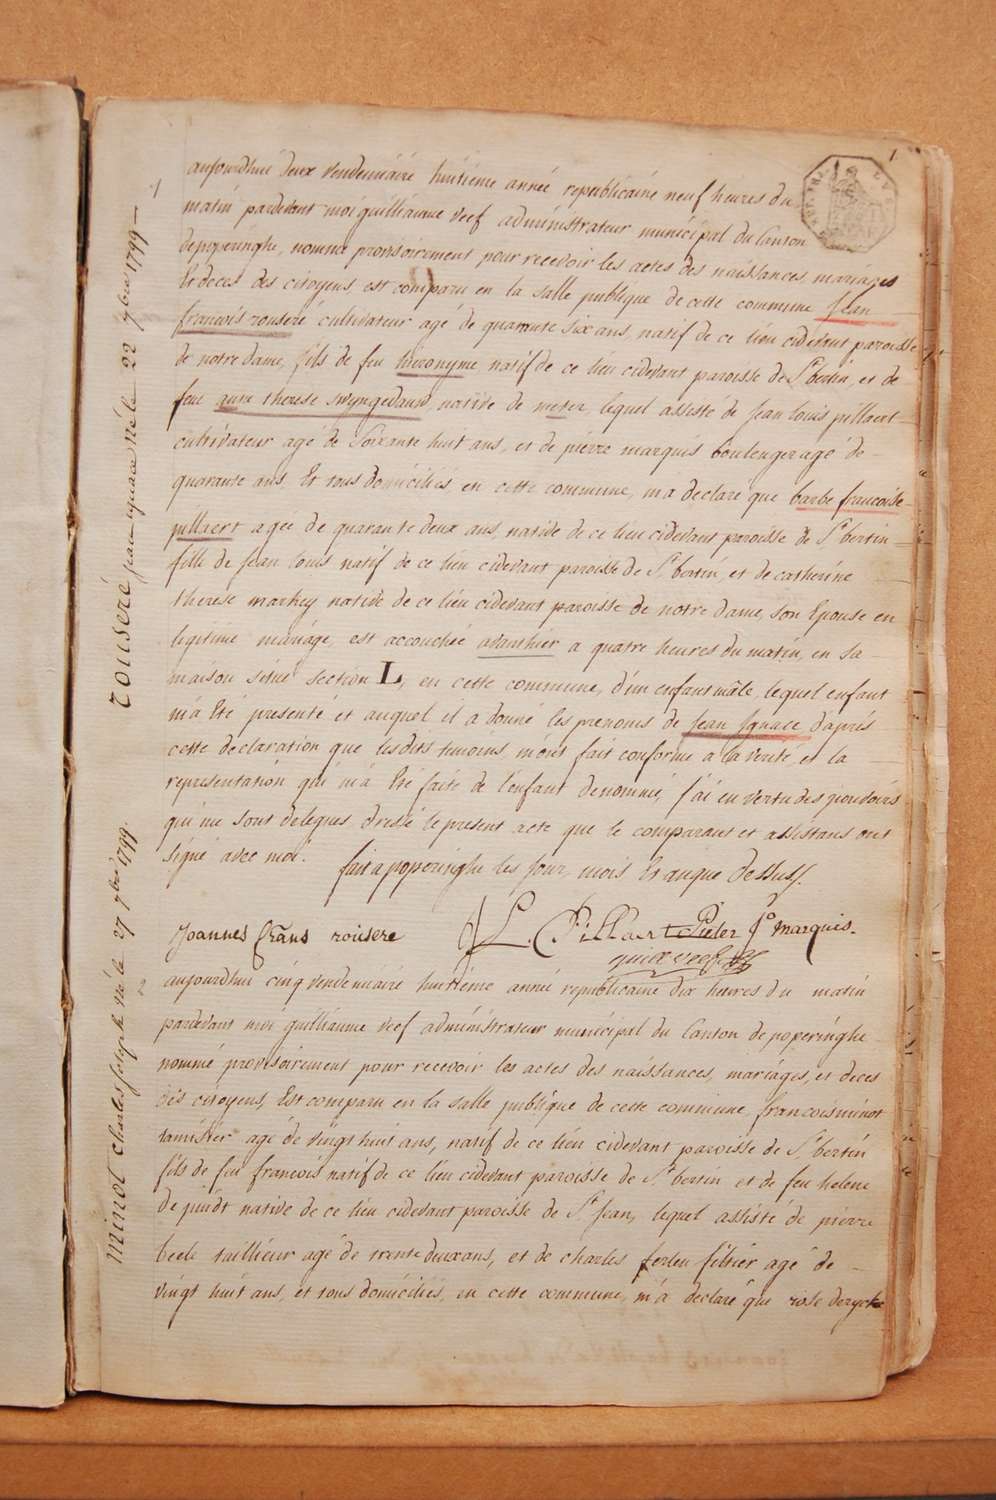 1
aujourdhui deux vendemiaire huitieme année republicaine neuf heures du
matin pardevant moi guilliaume veef administrateur municipal du Canton
depoperinghe, nommé provisoirement pour recevoir les actes des naissances, mariages
Et deces des citoyens est comparu en la salle publique de cette commune Jean
francois rouseré cultivateur agé de quarante six ans, natif de ce lieu cidevant paroisse
de notre dame, fils de feu hieronyme natif de ce lieu cidevant paroisse de St bertin, et de
feue anne therese swyngedauw, native de meter, lequel assisté de Jean louis pillaert
cultivateur agé de Soixante huit ans, et de pierre marquis boulenger agé de
quarante ans, Et tous domiciliés en cette commune, m'a declaré que barbe francoise
pillaert agée de quarante deux ans, native de ce lieu cidevant paroisse de St bertin
fille de Jean louis natif de ce lieu cidevant paroisse de St bertin, et de catherine
therese markey native de ce lieu cidevant paroisse de notre dame, son Epouse en
legitime mariage, est accouchée avanthier a quatre heures du matin, en sa
maison situé section L, en cette commune, d'un enfant mâle, lequel enfant
m'a Eté presenté et auquel il a donné les prenoms de Jean Ignace d'aprés
cette declaration que lesdits temoins m'ont fait conforme a la verité, et la
representation qui m'a Eté faite de l'enfant denommé, J'ai en vertu des pouvoirs
qui me sont delegués dressé le present acte que le comparant et assistans ont
signé avec moi. fait a poperinghe les jour, mois Et anque dessus.
Joannes frans rousere J L. Pillaert Pieter Jo marquis.
guil veef
aujourdhui cinq vendemiaire huitieme année republicaine dix heures du matin
pardevant moi guilliaume veef administrateur municipal du Canton de poperinghe
nommé provisoirement pour recevoir les actes des naissances, mariages, et deces
des citoyens, Est comparu en la salle publique de cette commune, francois minot
tamisier agé de vingt huit ans, natif de ce lieu cidevant paroisse de St bertin
fils de feu francois natif de ce lieu cidevant paroisse de St bertin et de feu helene
De puidt native de ce lieu cidevant paroisse de St Jean, lequel assisté de pierre
beele taillieur agé de trente deux ans, et de charles ferleu filtier agé de
vingt huit ans, et tous domiciliés, en cette commune, m'a declaré que rose derycke
1
rouseré jean ignace né le 22 7bre 1799
2
minot charles joseph né le 27 7bre 1799.